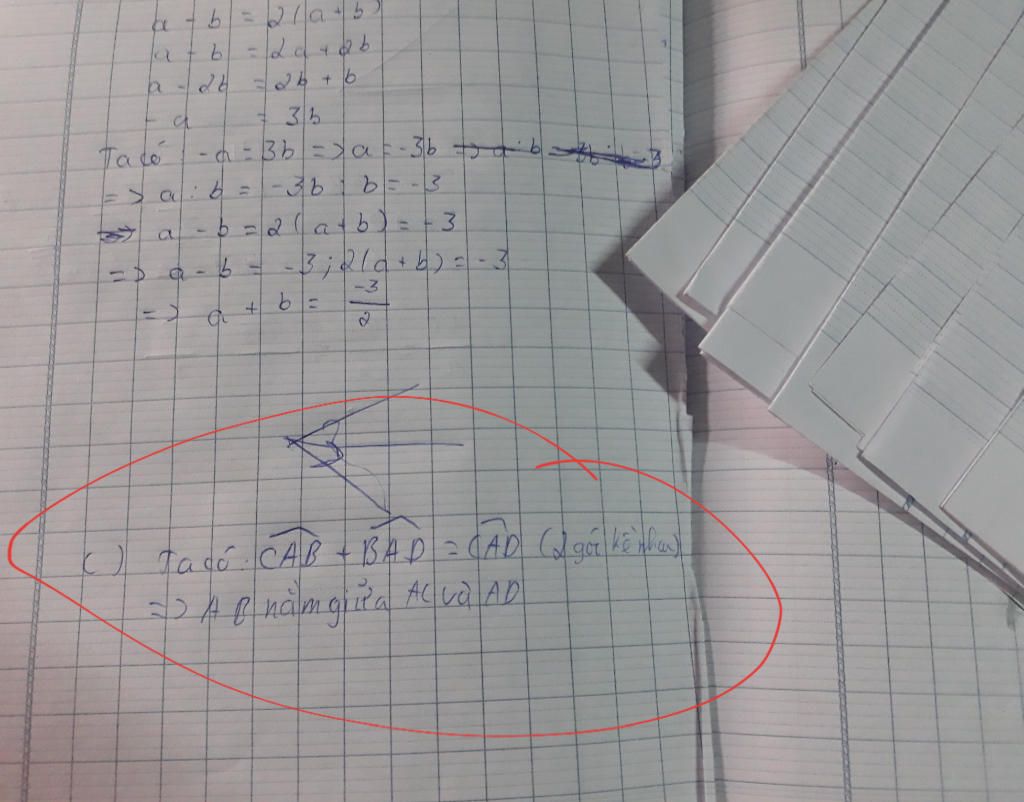 a - b = 2(a+b)
a - b = 2a + 2b
a - 2b = 2b + b
- a = 3b
Ta có -a = 3b => a = -3b
=> a : b = -3b : b = -3
a - b = 2(a+b) = -3
=> a - b = -3 ; 2(a+b) = -3
=> a + b = -3/2
c) Ta có: CAB + BAD = CAD (2 góc kề nhau)
=> AB nằm giữa AC và AD